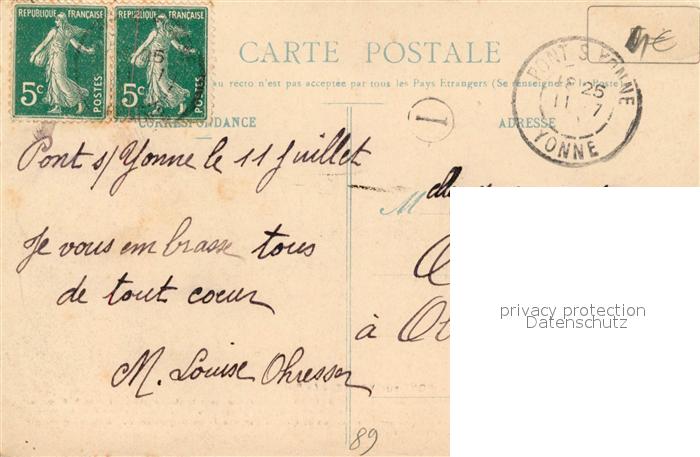 REPUBLIQUE FRANÇAISE REPUBLIQUE FRANÇAISE
5c POSTES 5c POSTES
CARTE POSTALE
au recto n'est pas acceptée par tous les Pays Etrangers (Se renseigner à la Poste)
PONT S YONNE
25
11 7
YONNE
I
CORRESPONDANCE
ADRESSE
Pont s/ Yonne le 11 Juillet
Je vous embrasse tous
de tout coeur
M. Louise Ohresser
M
à
89
privacy protection
Datenschutz